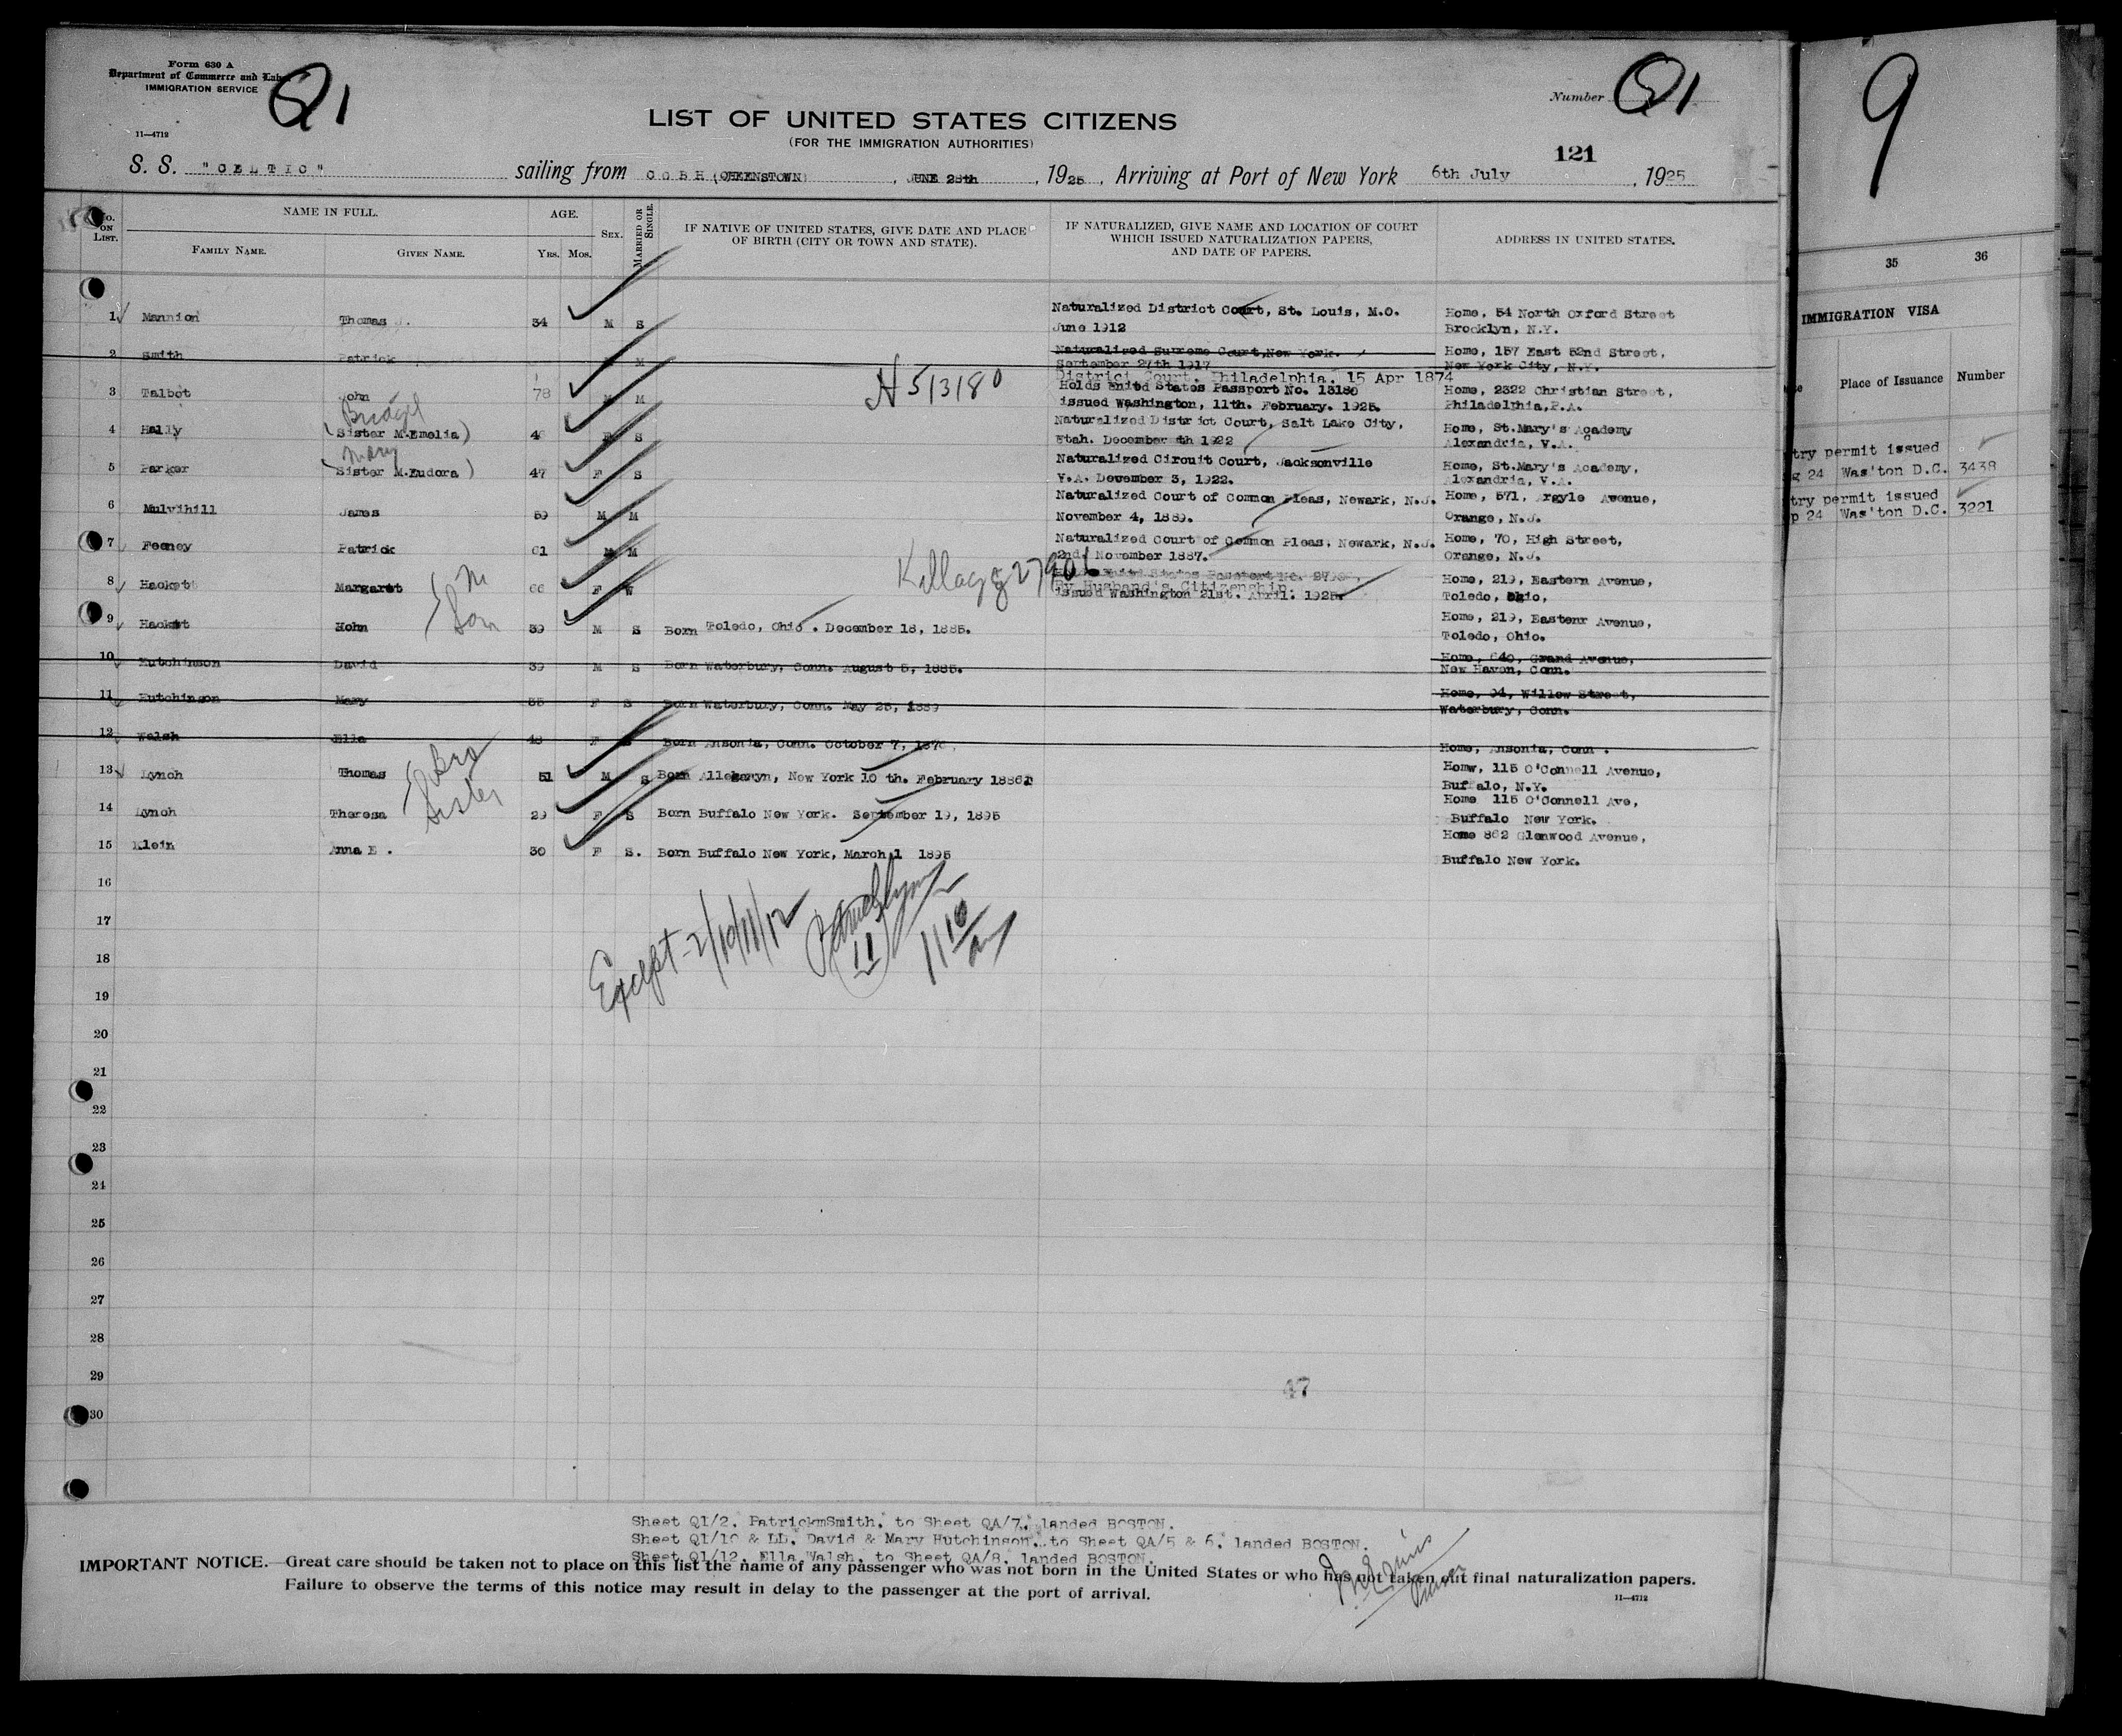 Form 630 A
Department of Commerce and Labor
IMMIGRATION SERVICE
Q1
11—4712
Number Q1
LIST OF UNITED STATES CITIZENS
(FOR THE IMMIGRATION AUTHORITIES)
121
S. S. "CELTIC" sailing from COBH (QUEENSTOWN), JUNE 28th, 1925, Arriving at Port of New York 6th July, 1925
No. ON LIST. NAME IN FULL. AGE. SEX. MARRIED OR SINGLE. IF NATIVE OF UNITED STATES, GIVE DATE AND PLACE OF BIRTH (CITY OR TOWN AND STATE). IF NATURALIZED, GIVE NAME AND LOCATION OF COURT WHICH ISSUED NATURALIZATION PAPERS, AND DATE OF PAPERS. ADDRESS IN UNITED STATES.
FAMILY NAME. GIVEN NAME. YRS. MOS.
1 Mannion Thomas J. 34 M S Naturalized District Court, St. Louis, M.O. Home, 54 North Oxford Street
June 1912 Brooklyn, N.Y.
2 Smith Patrick M Naturalized Supreme Court, New York. Home, 157 East 52nd Street,
September 27th 1917 New York City, N.Y.
District Court, Philadelphia, 15 Apr 1874
3 Talbot John 78 M M N 513180 Holds United States Passport No. 13180 Home, 2322 Christian Street,
issued Washington, 11th. February. 1925. Philadelphia, P.A.
Bridget
4 Hally (Sister M.Emelia) F S Naturalized District Court, Salt Lake City, Home, St.Mary's Academy
Utah. December th 1922 Alexandria, V.A.
Mary
5 Parker (Sister M.Eudora) 47 F S Naturalized Circuit Court, Jacksonville Home, St.Mary's Academy,
V.A. December 3, 1922. Alexandria, V.A.
6 Mulvihill James 59 M M Naturalized Court of Common Pleas, Newark, N.J. Home, 571, Argyle Avenue,
November 4, 1889. Orange, N.J.
7 Feeney Patrick 61 M M Naturalized Court of Common Pleas, Newark, N.J. Home, 70, High Street,
2nd November 1887. Orange, N.J.
8 Hackett Margaret M 66 F W United States Passport No. Home, 219, Eastern Avenue,
By Husband's Citizenship.
issued Washington 21st. April. 1925. Toledo, Ohio,
9 Hackett John Son 39 M S Born Toledo, Ohio . December 18, 1885. Home, 219, Eastenr Avenue,
Toledo, Ohio.
10 Hutchinson David 39 M S Born Waterbury, Conn. August 5, 1885. Home, 640, Grand Avenue,
New Haven, Conn.
11 Hutchinson Mary F S Born Waterbury, Conn. May 25, 1889 Home, 94, Willow Street,
Waterbury, Conn.
12 Walsh Ella 48 F S Born Ansonia, Conn. October 7, 1876, Home, Ansonia, Conn .
13 Lynch Thomas Bro 51 M S Born Allegaryn, New York 10 th. February 1886 Homw, 115 O'Connell Avenue,
Buffalo, N.Y.
14 Lynch Theresa Sister 29 F S Born Buffalo New York. September 19, 1895 Home 115 O'Connell Ave,
Buffalo New York.
15 Klein Anna E . 30 F S. Born Buffalo New York, March 1 1895 Home 862 Glenwood Avenue,
Buffalo New York.
16
17
Except - 2/10/11/12
(11)
11 10
18
19
20
21
22
23
24
25
26
27
28
29
47
30
Sheet Q1/2, PatrickmSmith, to Sheet QA/7, landed BOSTON.
Sheet Q1/10 & LL, David & Mary Hutchinson, to Sheet QA/5 & 6, landed BOSTON.
Sheet Q1/12, Ella Walsh, to Sheet QA/8, landed BOSTON.
IMPORTANT NOTICE.—Great care should be taken not to place on this list the name of any passenger who was not born in the United States or who has not taken out final naturalization papers.
Failure to observe the terms of this notice may result in delay to the passenger at the port of arrival.
Purser
11—4712
9
35 36
IMMIGRATION VISA
Place of Issuance Number
try permit issued
g 24 Was'ton D.C. 3438
try permit issued
p 24 Was'ton D.C. 3221